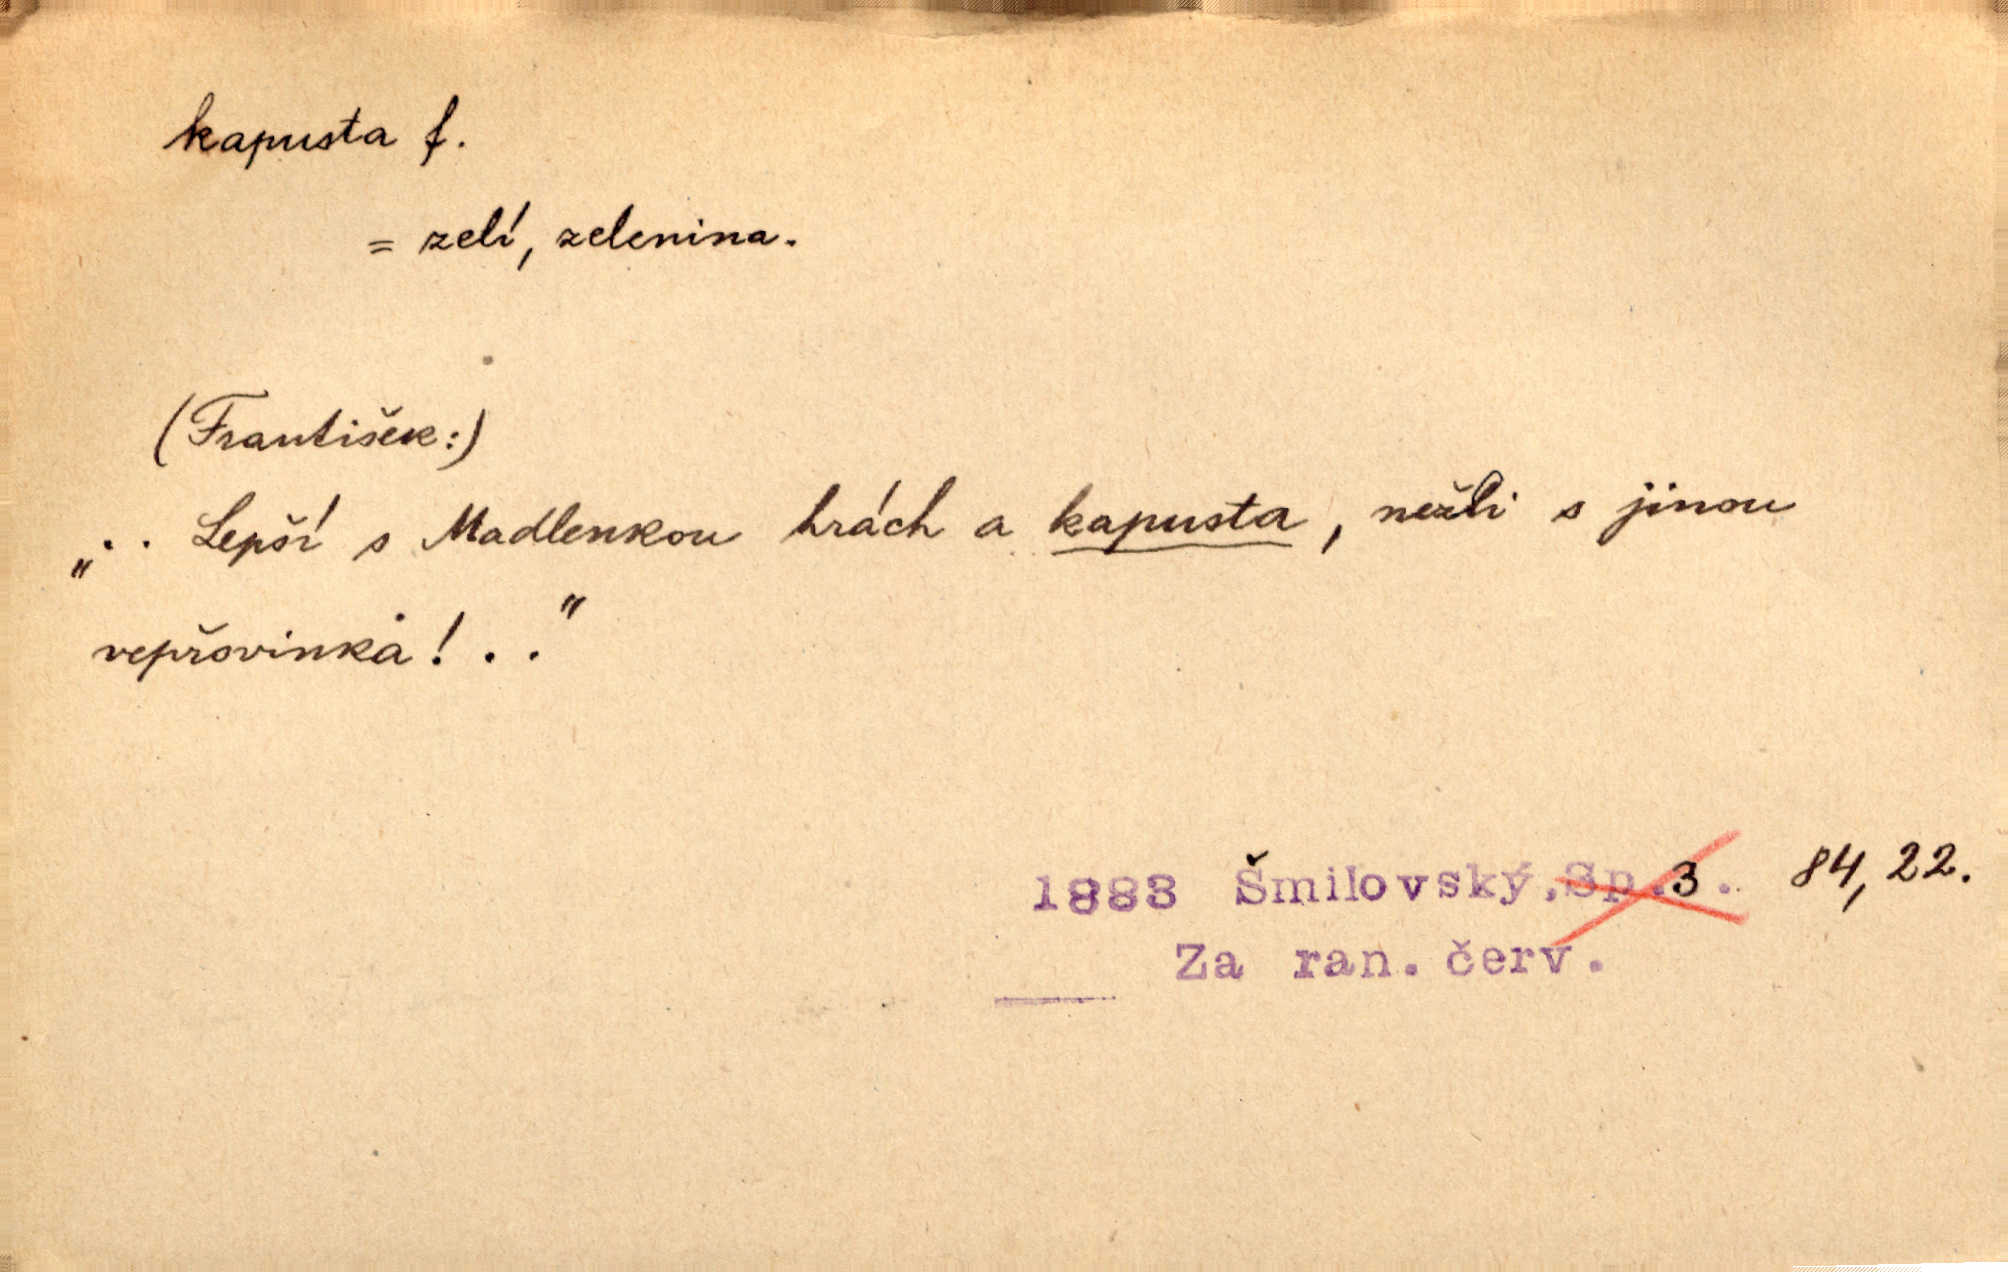 kapusta f.
= zelí, zelenina.
(František:)
„.. Lepší s Madlenkou hrách a kapusta, nežli s jinou
vepřovinka!.."
1883 Šmilovský, Sp.3. 84, 22.
Za ran. červ.